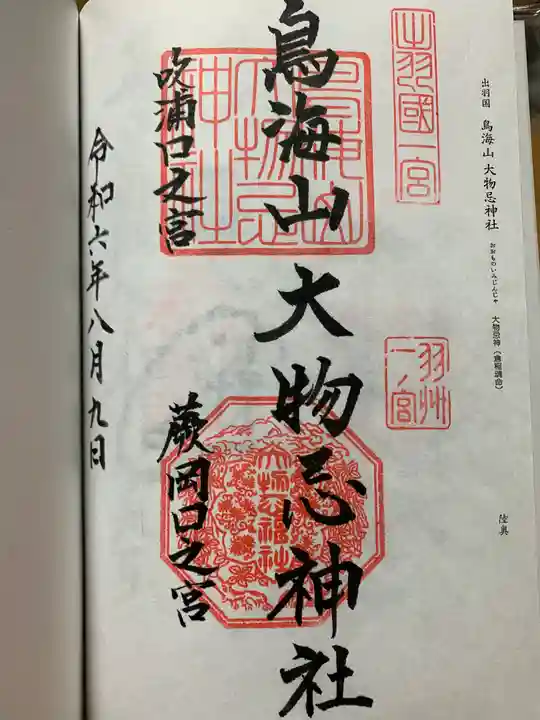 出羽国 鳥海山 大物忌神社 おおものいみじんじゃ 大物忌神（倉稲魂命）
陸奥
出羽國一宮
羽州一ノ宮
鳥海山大物忌神社
鳥海山大物忌神社
大物忌神社
吹浦口之宮
蕨岡口之宮
令和六年八月九日